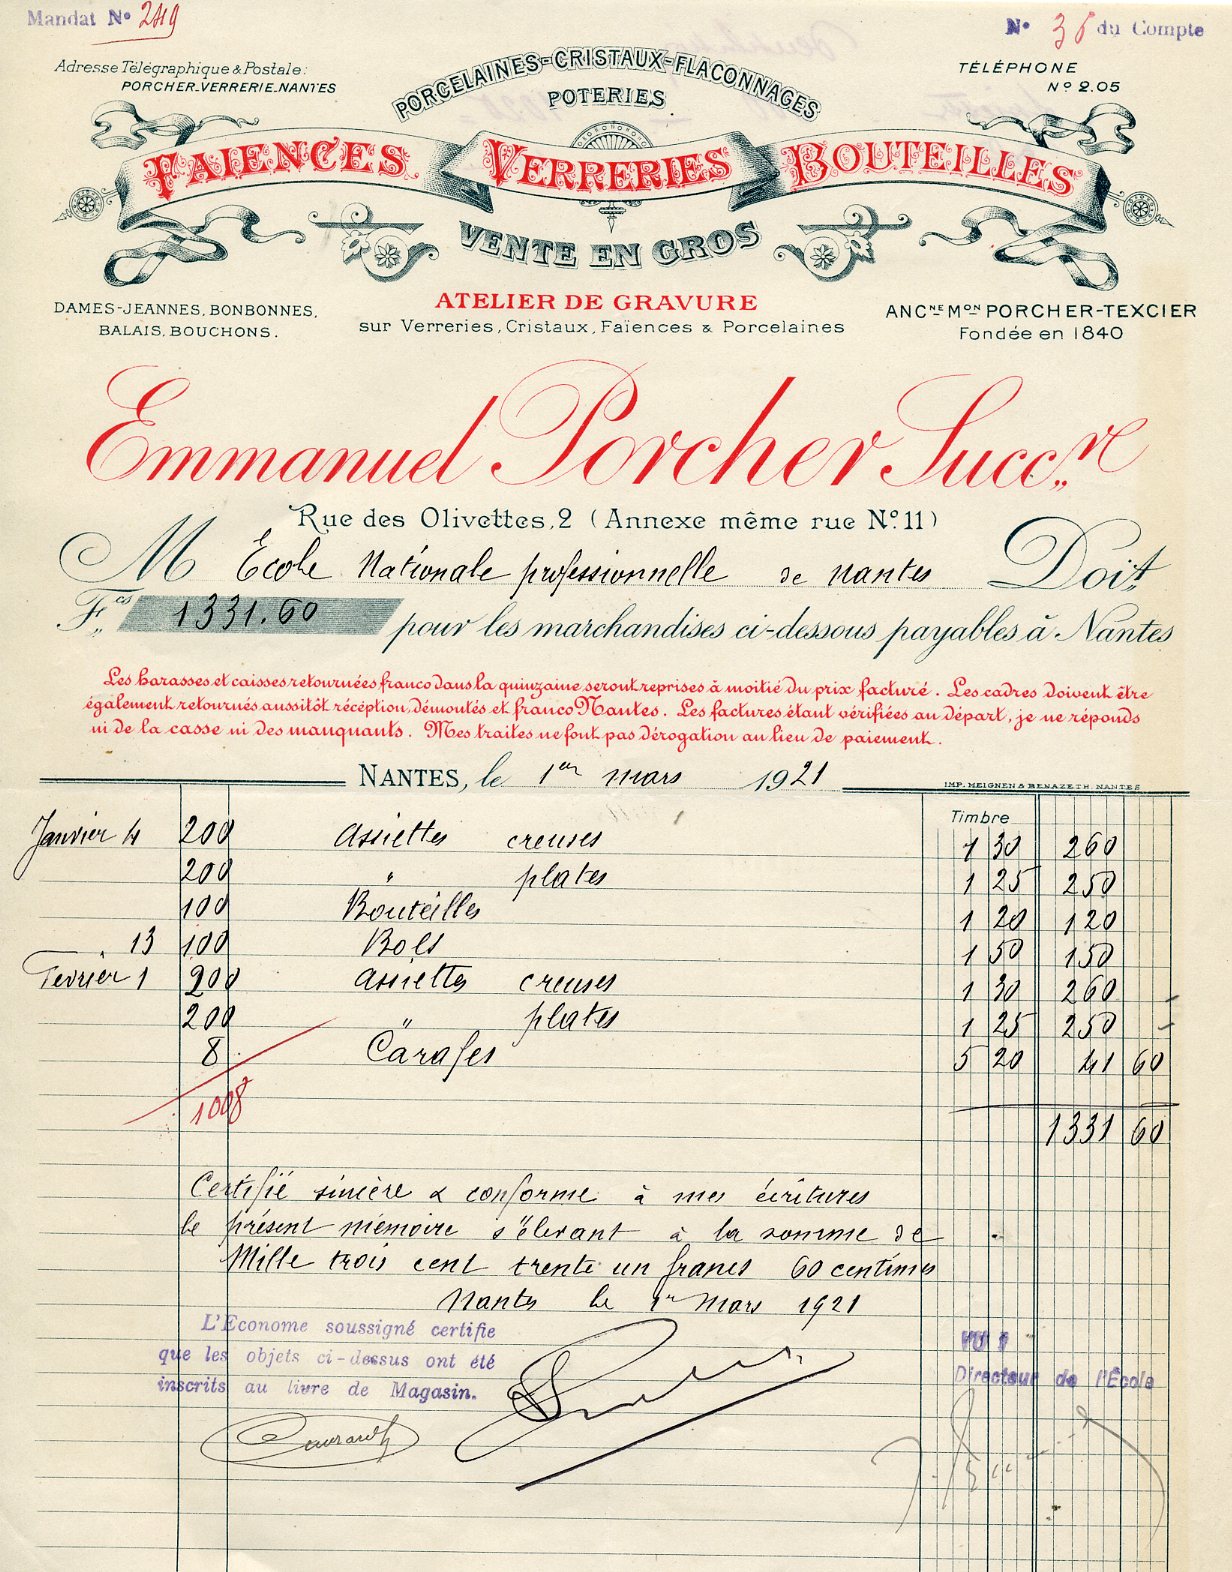 Mandat Nº 249
Nº 36 du Compte
Adresse Télégraphique & Postale:
PORCHER_VERRERIE_NANTES
TÉLÉPHONE
Nº 2.05
PORCELAINES-CRISTAUX-FLACONNAGES
POTERIES
FAIENCES VERRERIES BOUTEILLES
VENTE EN GROS
DAMES-JEANNES, BONBONNES,
BALAIS, BOUCHONS.
ATELIER DE GRAVURE
sur Verreries, Cristaux, Faïences & Porcelaines
ANCNE MON PORCHER-TEXCIER
Fondée en 1840
Emmanuel Porcher Succr
Rue des Olivettes, 2 (Annexe même rue Nº 11)
M École Nationale professionnelle de Nantes Doit
Fcs 1331.60 pour les marchandises ci-dessous payables à Nantes
Les harasses et caisses retournées franco dans la quinzaine seront reprises à moitié du prix facturé. Les cadres doivent être
également retournés aussitôt réception, démontés et franco Nantes. Les factures étant vérifiées au départ, je ne réponds
ni de la casse ni des manquants. Mes traites ne font pas dérogation au lieu de paiement.
NANTES, le 1er mars 1921
IMP. MEIGNEN & BENAZETH. NANTES
Timbre
Janvier 4 200 Assiettes creuses 1 30 260
200 " plates 1 25 250
100 Bouteilles 1 20 120
13 100 Bols 1 50 150
Fevrier 1 200 Assiettes creuses 1 30 260
200 " plates 1 25 250
8 Carafes 5 20 41 60
1008
1331 60
Certifié sincère & conforme à mes écritures
le présent mémoire s'élevant à la somme de
Mille trois cent trente un francs 60 centimes
Nantes le 1er Mars 1921
L'Econome soussigné certifie
que les objets ci-dessus ont été
inscrits au livre de Magasin.
VU !
Directeur de l'École